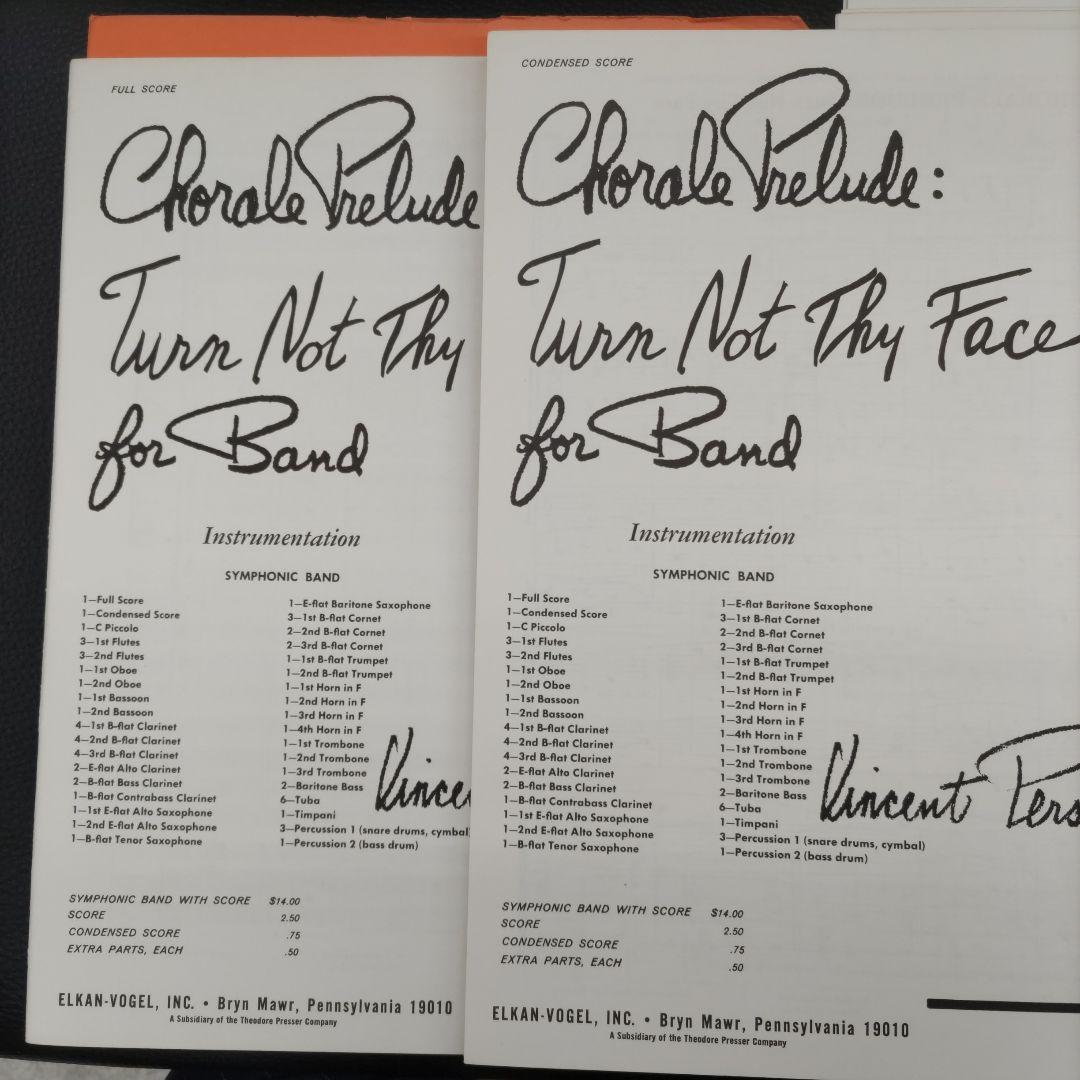 FULL SCORE
Chorale Prelude
Turn Not Thy
for Band
Instrumentation
SYMPHONIC BAND
1—Full Score
1—Condensed Score
1—C Piccolo
3—1st Flutes
3—2nd Flutes
1—1st Oboe
1—2nd Oboe
1—1st Bassoon
1—2nd Bassoon
4—1st B-flat Clarinet
4—2nd B-flat Clarinet
4—3rd B-flat Clarinet
2—E-flat Alto Clarinet
2—B-flat Bass Clarinet
1—B-flat Contrabass Clarinet
1—1st E-flat Alto Saxophone
1—2nd E-flat Alto Saxophone
1—B-flat Tenor Saxophone
1—E-flat Baritone Saxophone
3—1st B-flat Cornet
2—2nd B-flat Cornet
2—3rd B-flat Cornet
1—1st B-flat Trumpet
1—2nd B-flat Trumpet
1—1st Horn in F
1—2nd Horn in F
1—3rd Horn in F
1—4th Horn in F
1—1st Trombone
1—2nd Trombone
1—3rd Trombone
2—Baritone Bass
6—Tuba
1—Timpani
3—Percussion 1 (snare drums, cymbal)
1—Percussion 2 (bass drum)
Vince
SYMPHONIC BAND WITH SCORE $14.00
SCORE 2.50
CONDENSED SCORE .75
EXTRA PARTS, EACH .50
ELKAN-VOGEL, INC. • Bryn Mawr, Pennsylvania 19010
A Subsidiary of the Theodore Presser Company
CONDENSED SCORE
Chorale Prelude:
Turn Not Thy Face
for Band
Instrumentation
SYMPHONIC BAND
1—Full Score
1—Condensed Score
1—C Piccolo
3—1st Flutes
3—2nd Flutes
1—1st Oboe
1—2nd Oboe
1—1st Bassoon
1—2nd Bassoon
4—1st B-flat Clarinet
4—2nd B-flat Clarinet
4—3rd B-flat Clarinet
2—E-flat Alto Clarinet
2—B-flat Bass Clarinet
1—B-flat Contrabass Clarinet
1—1st E-flat Alto Saxophone
1—2nd E-flat Alto Saxophone
1—B-flat Tenor Saxophone
1—E-flat Baritone Saxophone
3—1st B-flat Cornet
2—2nd B-flat Cornet
2—3rd B-flat Cornet
1—1st B-flat Trumpet
1—2nd B-flat Trumpet
1—1st Horn in F
1—2nd Horn in F
1—3rd Horn in F
1—4th Horn in F
1—1st Trombone
1—2nd Trombone
1—3rd Trombone
2—Baritone Bass
6—Tuba
1—Timpani
3—Percussion 1 (snare drums, cymbal)
1—Percussion 2 (bass drum)
Vincent Pers
SYMPHONIC BAND WITH SCORE $14.00
SCORE 2.50
CONDENSED SCORE .75
EXTRA PARTS, EACH .50
ELKAN-VOGEL, INC. • Bryn Mawr, Pennsylvania 19010
A Subsidiary of the Theodore Presser Company